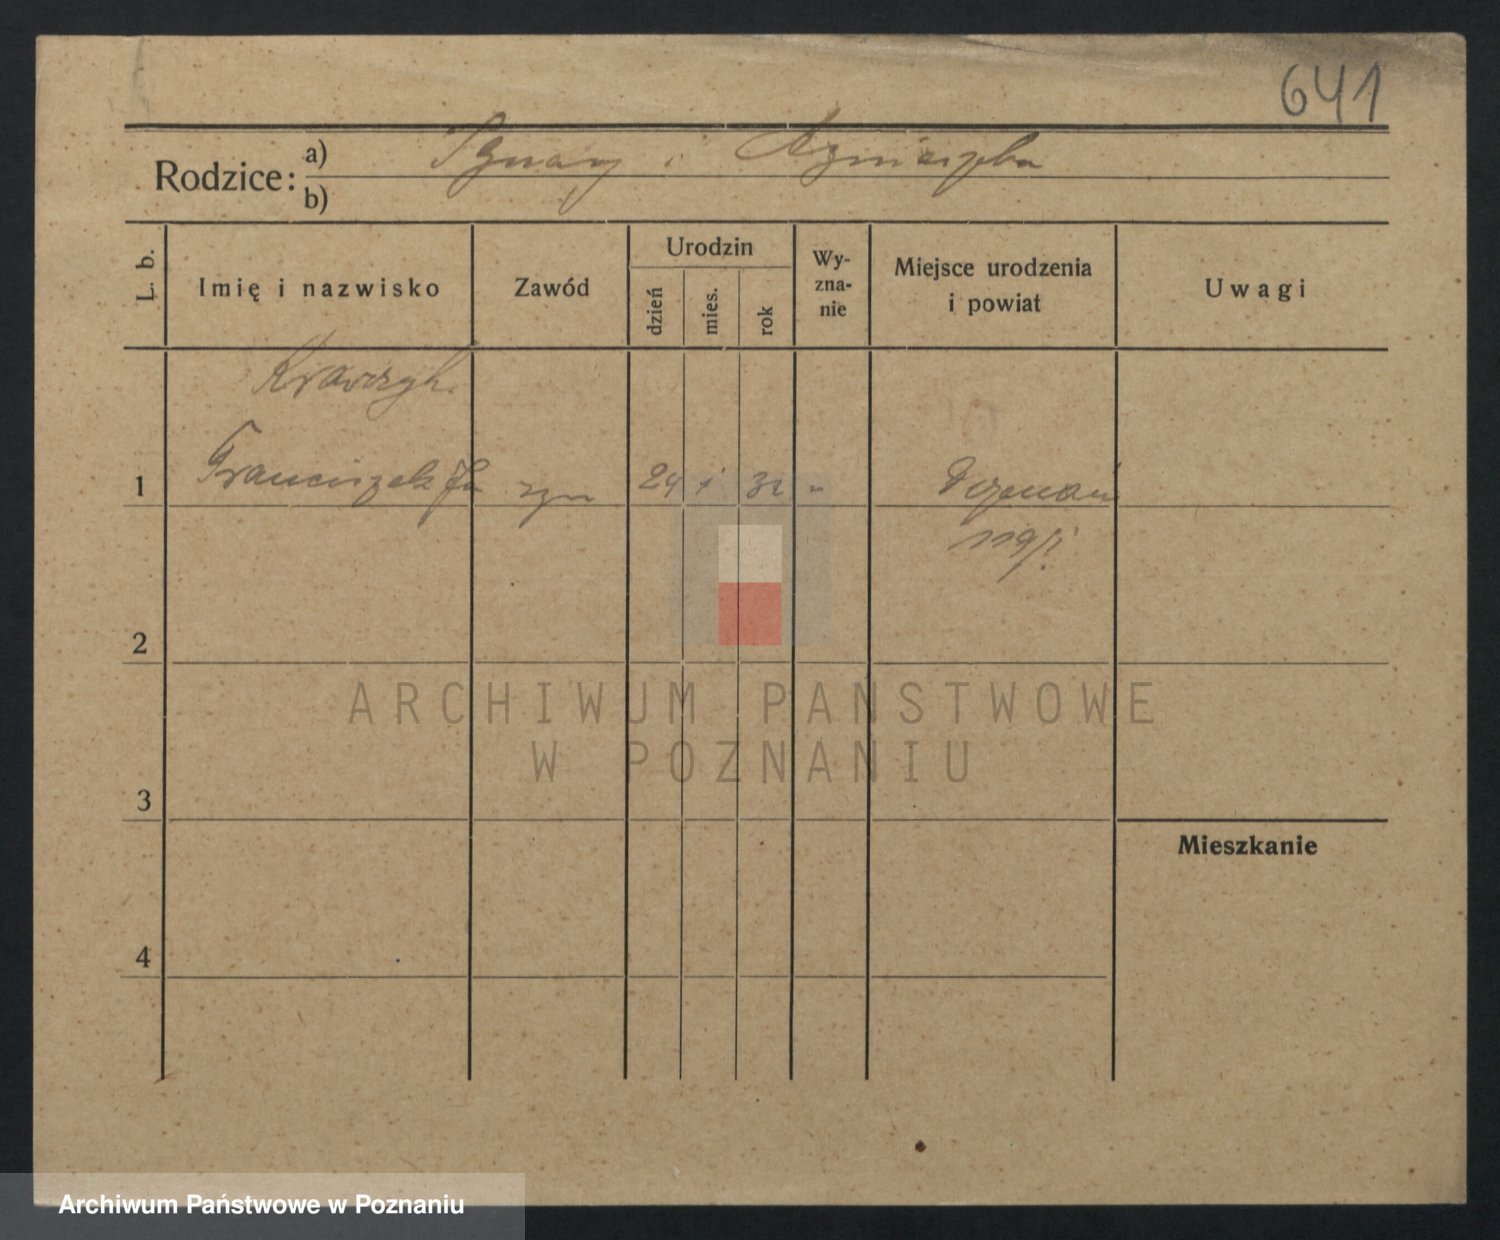 641
Rodzice: a) Ignacy i Agnieszka
b)
L. b.
Imię i nazwisko
Zawód
Urodzin
dzień
mies.
rok
Wy-
zna-
nie
Miejsce urodzenia
i powiat
Uwagi
Krawczyk
1 Franciszek syn 24 1 32 Poznań
119/i
2
ARCHIWUM PAŃSTWOWE
W POZNANIU
3
Mieszkanie
4
Archiwum Państwowe w Poznaniu